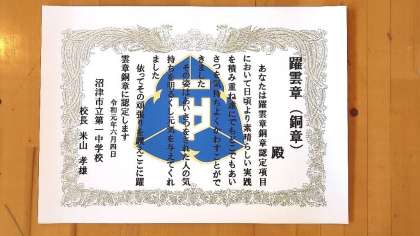 躍雲章（銅章）
殿
あなたは躍雲章銅章認定項目
において日頃より素晴らしい実践
を積み重ね誰にでもどこでもあい
さつを気持ちよくかわすことがで
きました
その姿はあいさつをされた人の気
持ちを明るくし元気を与えてくれ
ました
依ってその頑張りを讃えここに躍
雲章銅章に認定します
令和元年六月四日
沼津市立第一中学校
校長 米山 孝雄